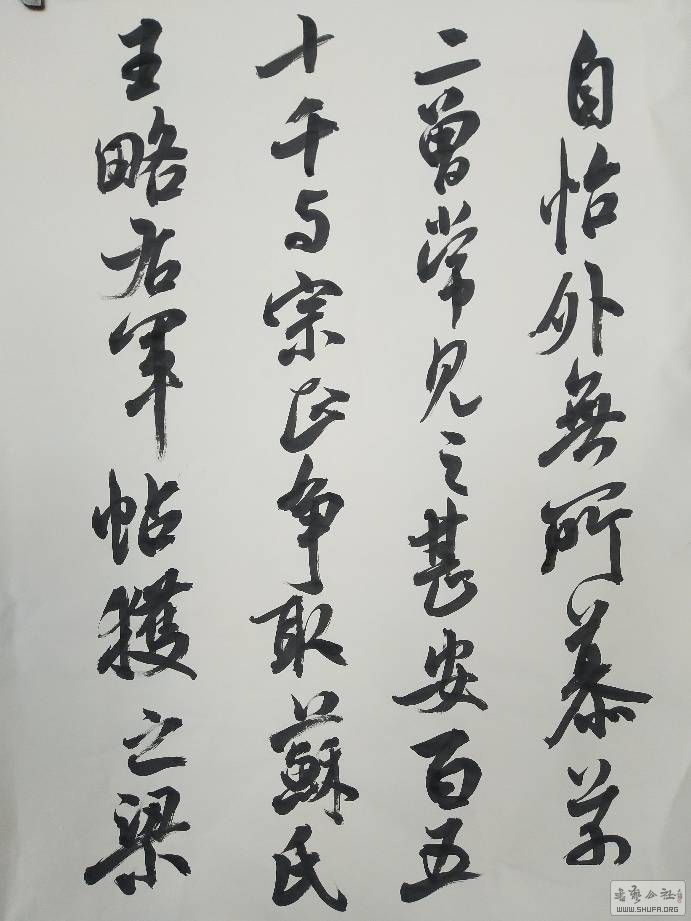 自怡外無所慕
二曾常見之甚安百五
十千与宗正争取蘇氏
王略右軍帖獲之梁
书艺公社
WWW.SHUFA.ORG